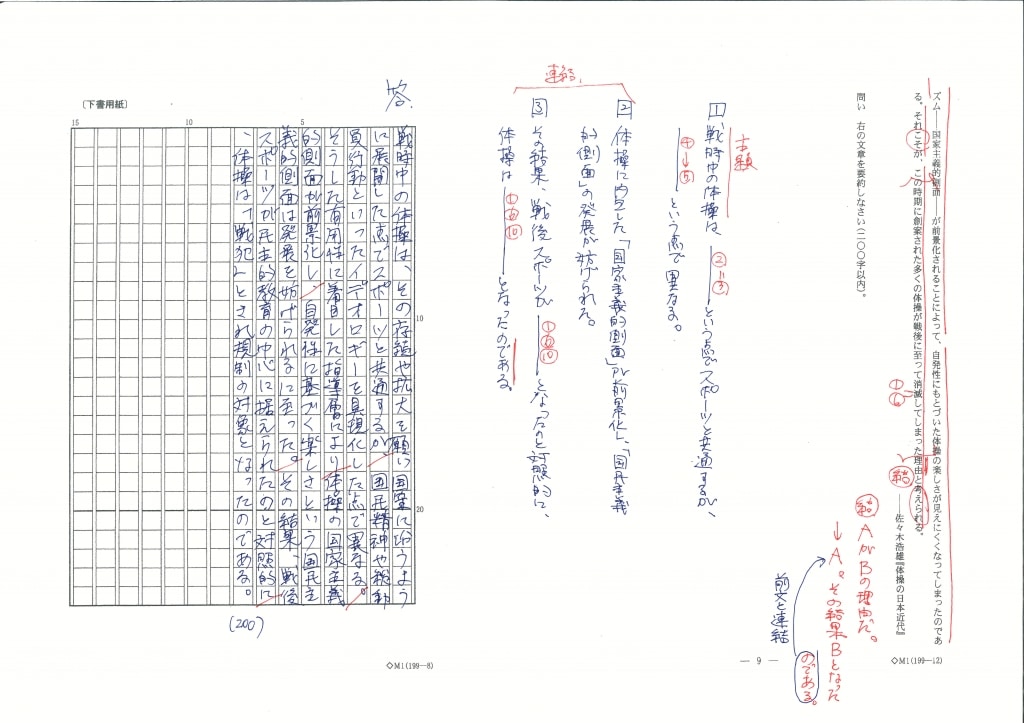 ズム――国家主義的側面――が前景化されることによって、自発性にもとづいた体操の楽しさが見えにくくなってしまったのであ
る。それこそが、この時期に創案された多くの体操が戦後に至って消滅してしまった理由と考えられる。
――佐々木浩雄『体操の日本近代』
問い 右の文章を要約しなさい(二〇〇字以内)。
結
結 AがBの理由だ。
↓A。その結果Bとなった
のである。
前文と連結
主題
1 戦時中の体操は、――という点でスポーツと共通するが、
②=③
――という点で異なる。
連結
2 体操に内包した「国家主義的側面」が前景化し、「国民主義
的側面」の発展が妨げられた。
3 その結果、戦後スポーツが――となったのと対照的に、
体操は――となったのである。
答.
〔下書用紙〕
5
10
15
10
20
戦時中の体操は、その存続や拡大を願い国策に沿うよう
に展開した点でスポーツと共通するが、国民精神や総動
員行動といったイデオロギーを具現化した点で異なる。
そうした有用性に着目した指導層により体操の国家主義
的側面が前景化し、自発性に基づく楽しさという国民主
義的側面は発展を妨げられるに至った。その結果、戦後
スポーツが民主的教育の中心に据えられたのと対照的に
、体操は「戦犯」とされ規制の対象となったのである。
(200)
◇M1(199―8)
― 9 ―
◇M1(199―12)